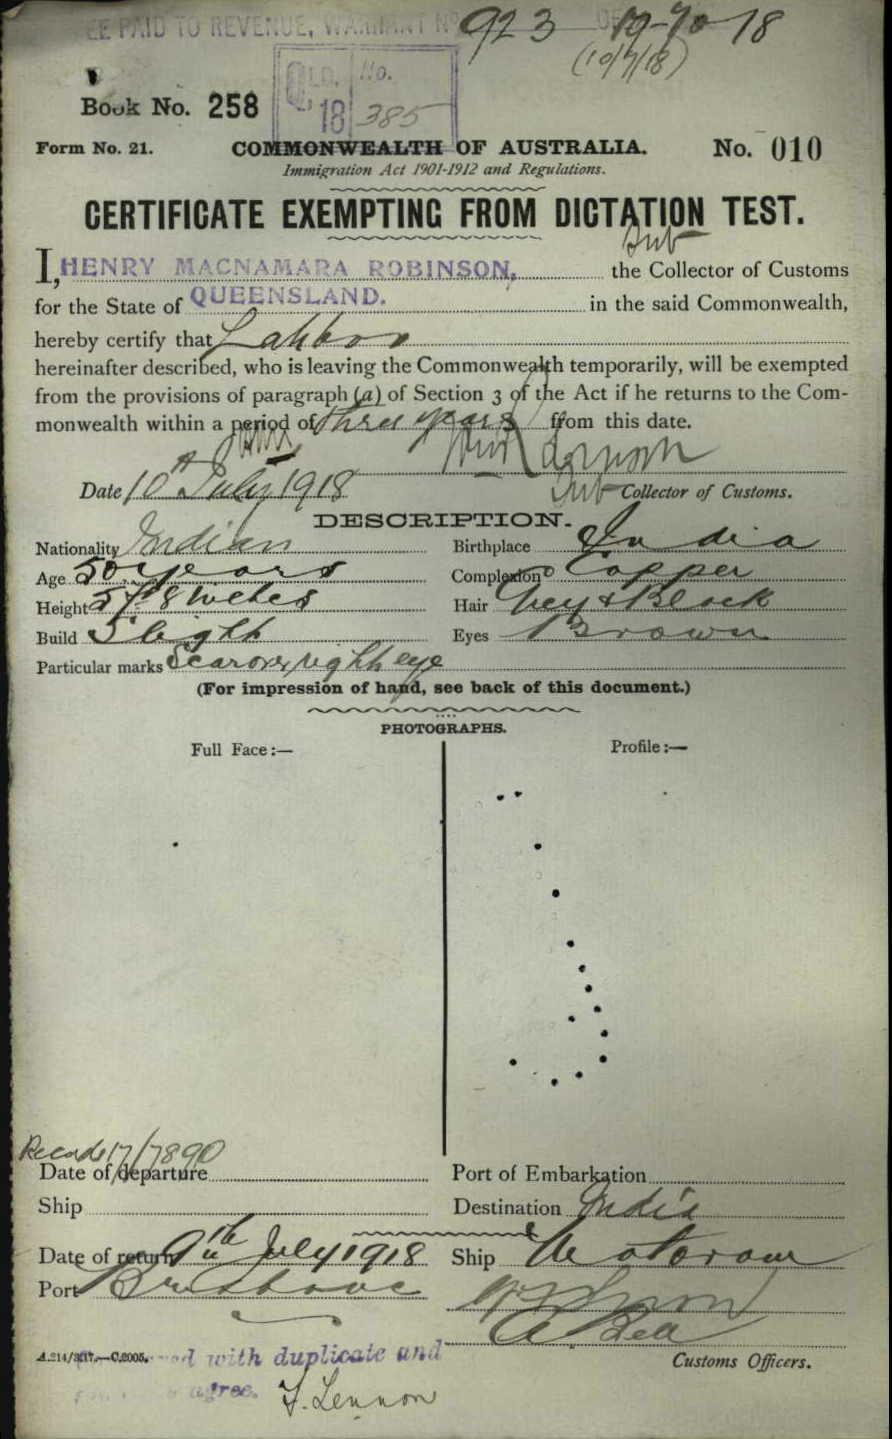 FEE PAID TO REVENUE, WARRANT No 923 OF 19-7-18
(10/7/18)
QLD. No.
18 385
Book No. 258
Form No. 21. COMMONWEALTH OF AUSTRALIA. No. 010
Immigration Act 1901-1912 and Regulations.
CERTIFICATE EXEMPTING FROM DICTATION TEST.
Sub
I, HENRY MACNAMARA ROBINSON, the Collector of Customs
for the State of QUEENSLAND. in the said Commonwealth,
hereby certify that
hereinafter described, who is leaving the Commonwealth temporarily, will be exempted
from the provisions of paragraph (a) of Section 3 of the Act if he returns to the Com-
monwealth within a period of three years from this date.
Date 10th July 1918 Sub Collector of Customs.
DESCRIPTION.
Nationality Indian Birthplace India
Age 50 years Complexion Copper
Height 5ft 8 inches Hair Grey & Black
Build Slight Eyes Brown
Particular marks Scar over right eye
(For impression of hand, see back of this document.)
PHOTOGRAPHS.
Full Face:— Profile:—
Records 17/7890
Date of departure Port of Embarkation
Ship Destination India
Date of return July 1918 Ship
Port Brisbane
A.214/3/17.—C.2005. with duplicate and Customs Officers.
agree. F. Lennon